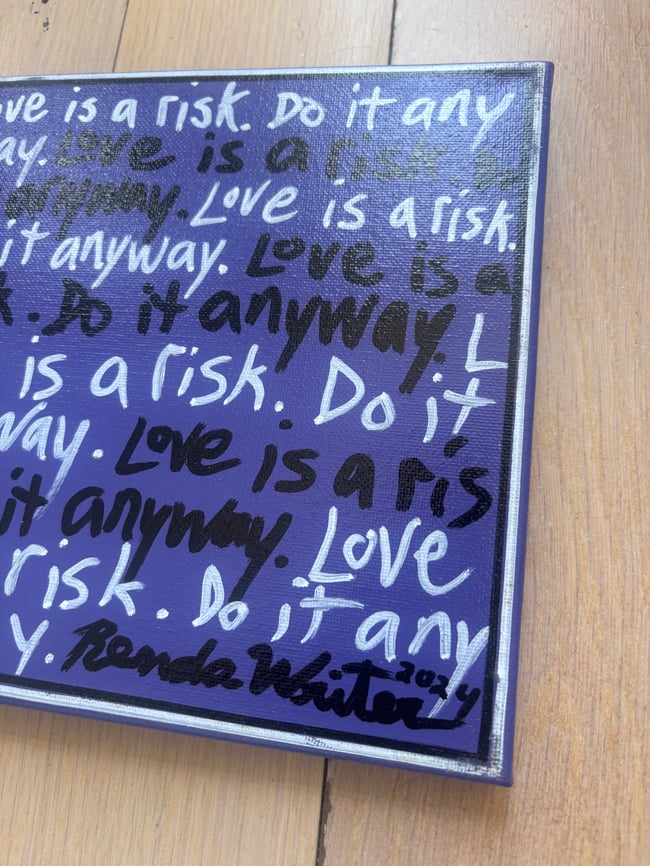 ve is a risk. Do it any
ay. Love is a risk. Do
anyway. Love is a risk.
it anyway. Love is a
k. Do it anyway. L
is a risk. Do it
way. Love is a ris
it anyway. Love
risk. Do it any
y. Renda Writer 2024